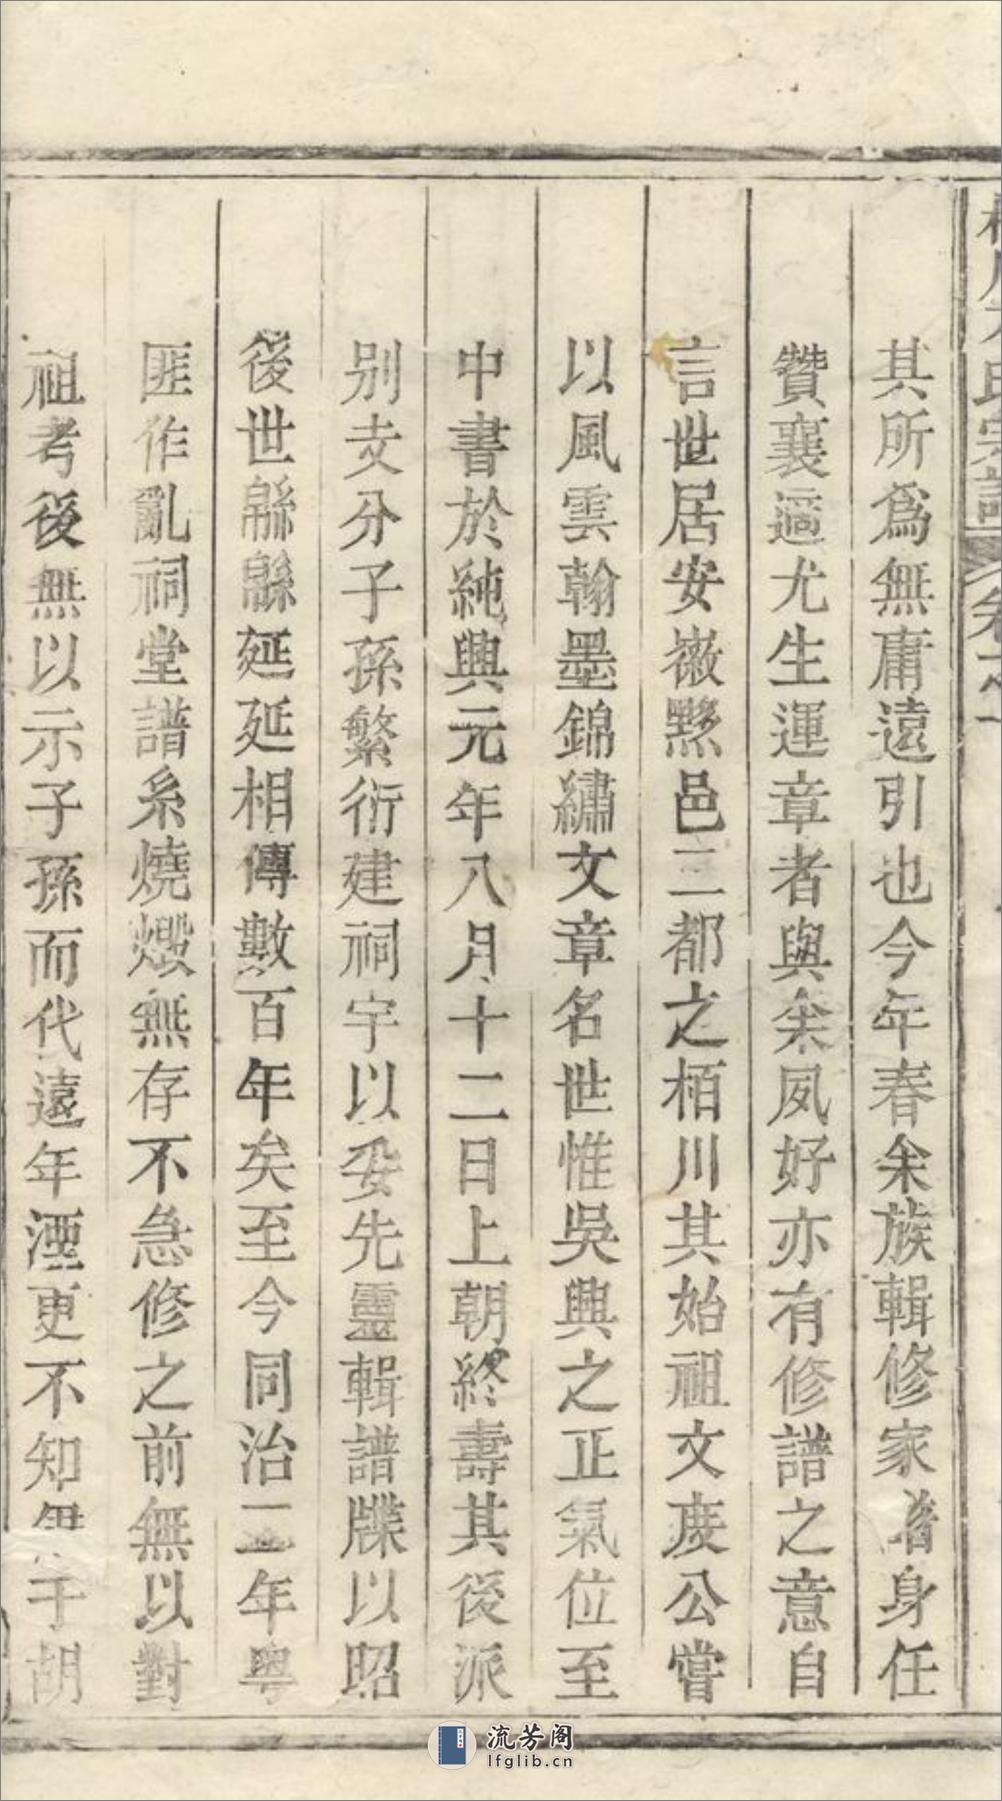 氏宗譜 卷之一
其所爲無庸遠引也今年春余族輯修家譜身任
贊襄適尤生運章者與余夙好亦有修譜之意自
言世居安徽黟邑二都之栢川其始祖文度公嘗
以風雲翰墨錦繡文章名世惟吳興之正氣位至
中書於純興元年八月十二日上朝終壽其後派
别支分子孫繁衍建祠宇以妥先靈輯譜牒以昭
後世緜緜延延相傳數百年矣至今同治二年粤
匪作亂祠堂譜系燒燬無存不急修之前無以對
祖考後無以示子孫而代遠年湮更不知伊于胡
流芳阁
lfglib.cn